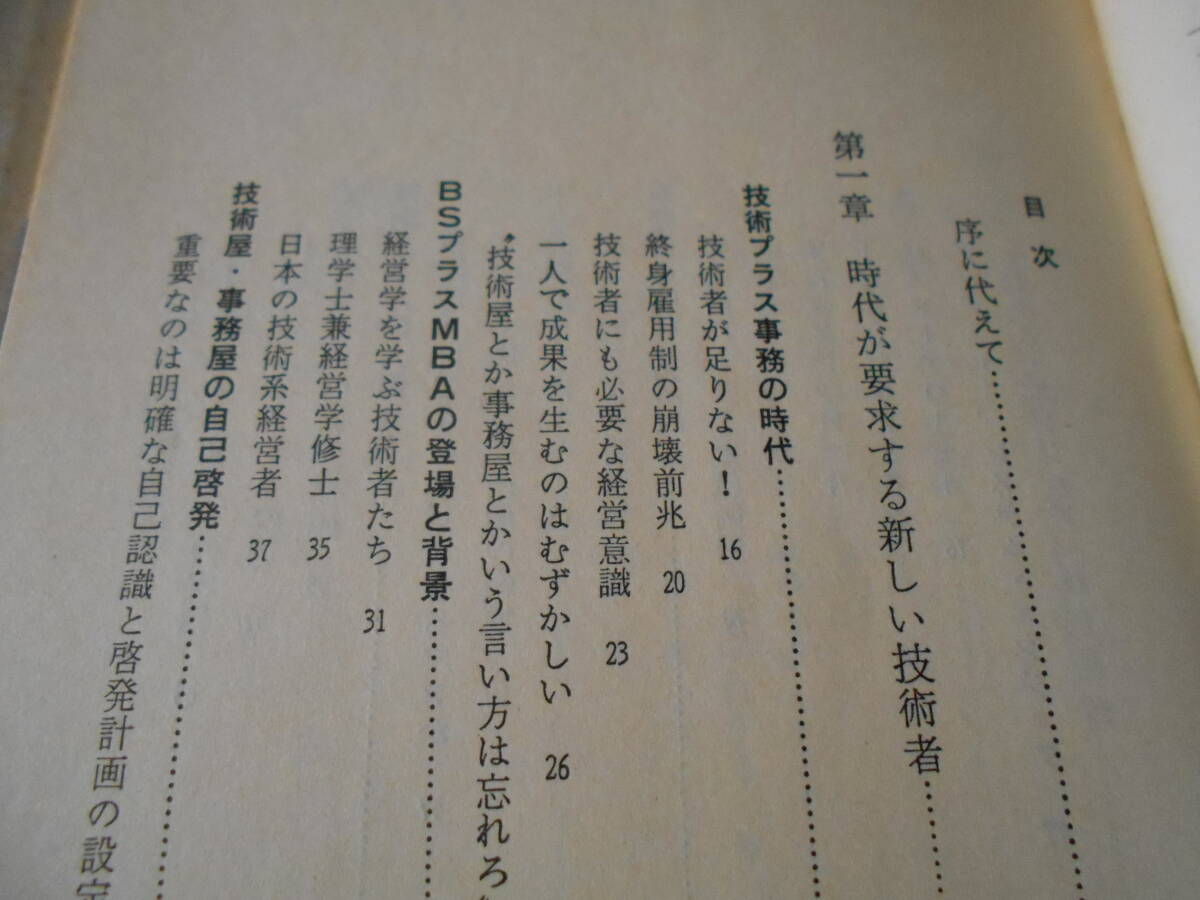 目次
序に代えて……………………
第一章　時代が要求する新しい技術者……
技術プラス事務の時代……………………
技術者が足りない！　16
終身雇用制の崩壊前兆　20
技術者にも必要な経営意識　23
一人で成果を生むのはむずかしい　26
〝技術屋とか事務屋とかいう言い方は忘れろ
BSプラスMBAの登場と背景……………………
経営学を学ぶ技術者たち　31
理学士兼経営学修士　35
日本の技術系経営者　37
技術屋・事務屋の自己啓発……………………
重要なのは明確な自己認識と啓発計画の設定